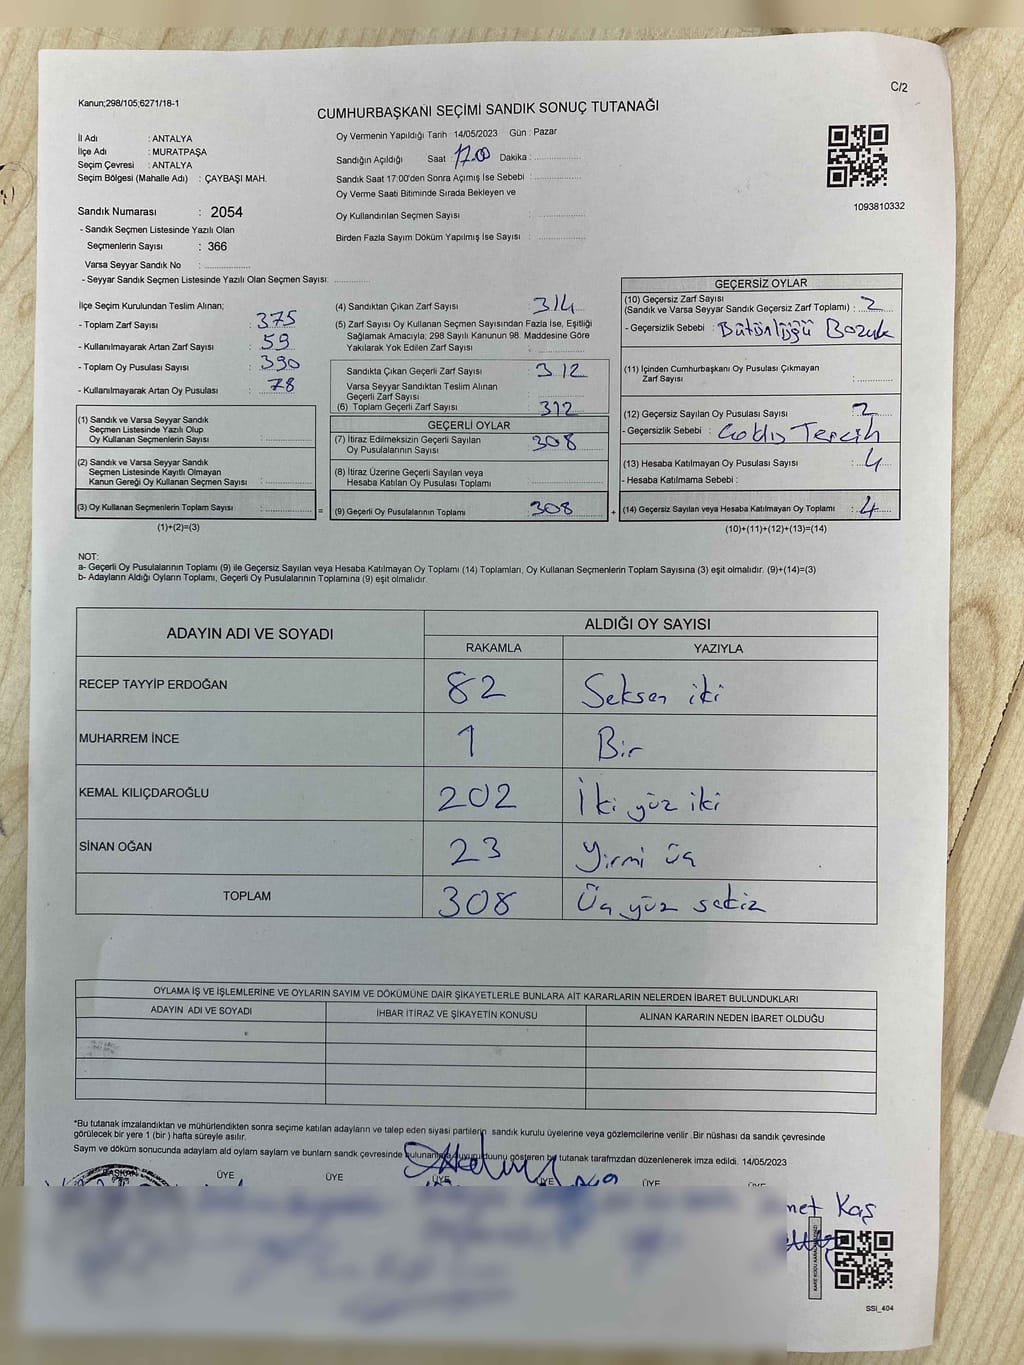 C/2
Kanun;298/105;6271/18-1
CUMHURBAŞKANI SEÇİMİ SANDIK SONUÇ TUTANAĞI
İl Adı : ANTALYA
İlçe Adı : MURATPAŞA
Seçim Çevresi : ANTALYA
Seçim Bölgesi (Mahalle Adı) : ÇAYBAŞI MAH.
Sandık Numarası : 2054
- Sandık Seçmen Listesinde Yazılı Olan
Seçmenlerin Sayısı : 366
Varsa Seyyar Sandık No :
- Seyyar Sandık Seçmen Listesinde Yazılı Olan Seçmen Sayısı:
Oy Vermenin Yapıldığı Tarih : 14/05/2023 Gün : Pazar
Sandığın Açıldığı Saat : 17.00 Dakika :
Sandık Saat 17:00'den Sonra Açımış İse Sebebi :
Oy Verme Saati Bitiminde Sırada Bekleyen ve
Oy Kullandırılan Seçmen Sayısı :
Birden Fazla Sayım Döküm Yapılmış İse Sayısı :
1093810332
İlçe Seçim Kurulundan Teslim Alınan;
- Toplam Zarf Sayısı : 375
- Kullanılmayarak Artan Zarf Sayısı : 59
- Toplam Oy Pusulası Sayısı : 390
- Kullanılmayarak Artan Oy Pusulası : 78
(1) Sandık ve Varsa Seyyar Sandık
Seçmen Listesinde Yazılı Olup
Oy Kullanan Seçmenlerin Sayısı :
(2) Sandık ve Varsa Seyyar Sandık
Seçmen Listesinde Kayıtlı Olmayan
Kanun Gereği Oy Kullanan Seçmen Sayısı :
(3) Oy Kullanan Seçmenlerin Toplam Sayısı :
(1)+(2)=(3)
(4) Sandıktan Çıkan Zarf Sayısı : 314
(5) Zarf Sayısı Oy Kullanan Seçmen Sayısından Fazla İse, Eşitliği
Sağlamak Amacıyla, 298 Sayılı Kanunun 98. Maddesine Göre
Yakılarak Yok Edilen Zarf Sayısı :
Sandıkta Çıkan Geçerli Zarf Sayısı : 312
Varsa Seyyar Sandıktan Teslim Alınan
Geçerli Zarf Sayısı :
(6) Toplam Geçerli Zarf Sayısı : 312
GEÇERLİ OYLAR
(7) İtiraz Edilmeksizin Geçerli Sayılan
Oy Pusulalarının Sayısı : 308
(8) İtiraz Üzerine Geçerli Sayılan veya
Hesaba Katılan Oy Pusulası Toplamı :
= (9) Geçerli Oy Pusulalarının Toplamı : 308 +
GEÇERSİZ OYLAR
(10) Geçersiz Zarf Sayısı
(Sandık ve Varsa Seyyar Sandık Geçersiz Zarf Toplamı) : 2
- Geçersizlik Sebebi : Bütünlüğü Bozuk
(11) İçinden Cumhurbaşkanı Oy Pusulası Çıkmayan
Zarf Sayısı :
(12) Geçersiz Sayılan Oy Pusulası Sayısı : 2
- Geçersizlik Sebebi : Çoklu Tercih
(13) Hesaba Katılmayan Oy Pusulası Sayısı : 4
- Hesaba Katılmama Sebebi :
(14) Geçersiz Sayılan veya Hesaba Katılmayan Oy Toplamı : 4
(10)+(11)+(12)+(13)=(14)
NOT:
a- Geçerli Oy Pusulalarının Toplamı (9) ile Geçersiz Sayılan veya Hesaba Katılmayan Oy Toplamı (14) Toplamları, Oy Kullanan Seçmenlerin Toplam Sayısına (3) eşit olmalıdır. (9)+(14)=(3)
b- Adayların Aldığı Oyların Toplamı, Geçerli Oy Pusulalarının Toplamına (9) eşit olmalıdır.
ADAYIN ADI VE SOYADI ALDIĞI OY SAYISI
RAKAMLA YAZIYLA
RECEP TAYYİP ERDOĞAN 82 Seksen iki
MUHARREM İNCE 1 Bir
KEMAL KILIÇDAROĞLU 202 İki yüz iki
SİNAN OĞAN 23 Yirmi üç
TOPLAM 308 Üç yüz sekiz
OYLAMA İŞ VE İŞLEMLERİNE VE OYLARIN SAYIM VE DÖKÜMÜNE DAİR ŞİKAYETLERLE BUNLARA AİT KARARLARIN NELERDEN İBARET BULUNDUKLARI
ADAYIN ADI VE SOYADI İHBAR İTİRAZ VE ŞİKAYETİN KONUSU ALINAN KARARIN NEDEN İBARET OLDUĞU
*Bu tutanak imzalandıktan ve mühürlendikten sonra seçime katılan adayların ve talep eden siyasi partilerin sandık kurulu üyelerine veya gözlemcilerine verilir .Bir nüshası da sandık çevresinde
görülecek bir yere 1 (bir ) hafta süreyle asılır.
Sayım ve döküm sonucunda adayların aldığı oyların sayıları ve bunların sandık çevresinde gösteren bu tutanak tarafımızdan düzenlenerek imza edildi. 14/05/2023
BAŞKAN ÜYE ÜYE ÜYE ÜYE ÜYE
Kaş
SSI_404